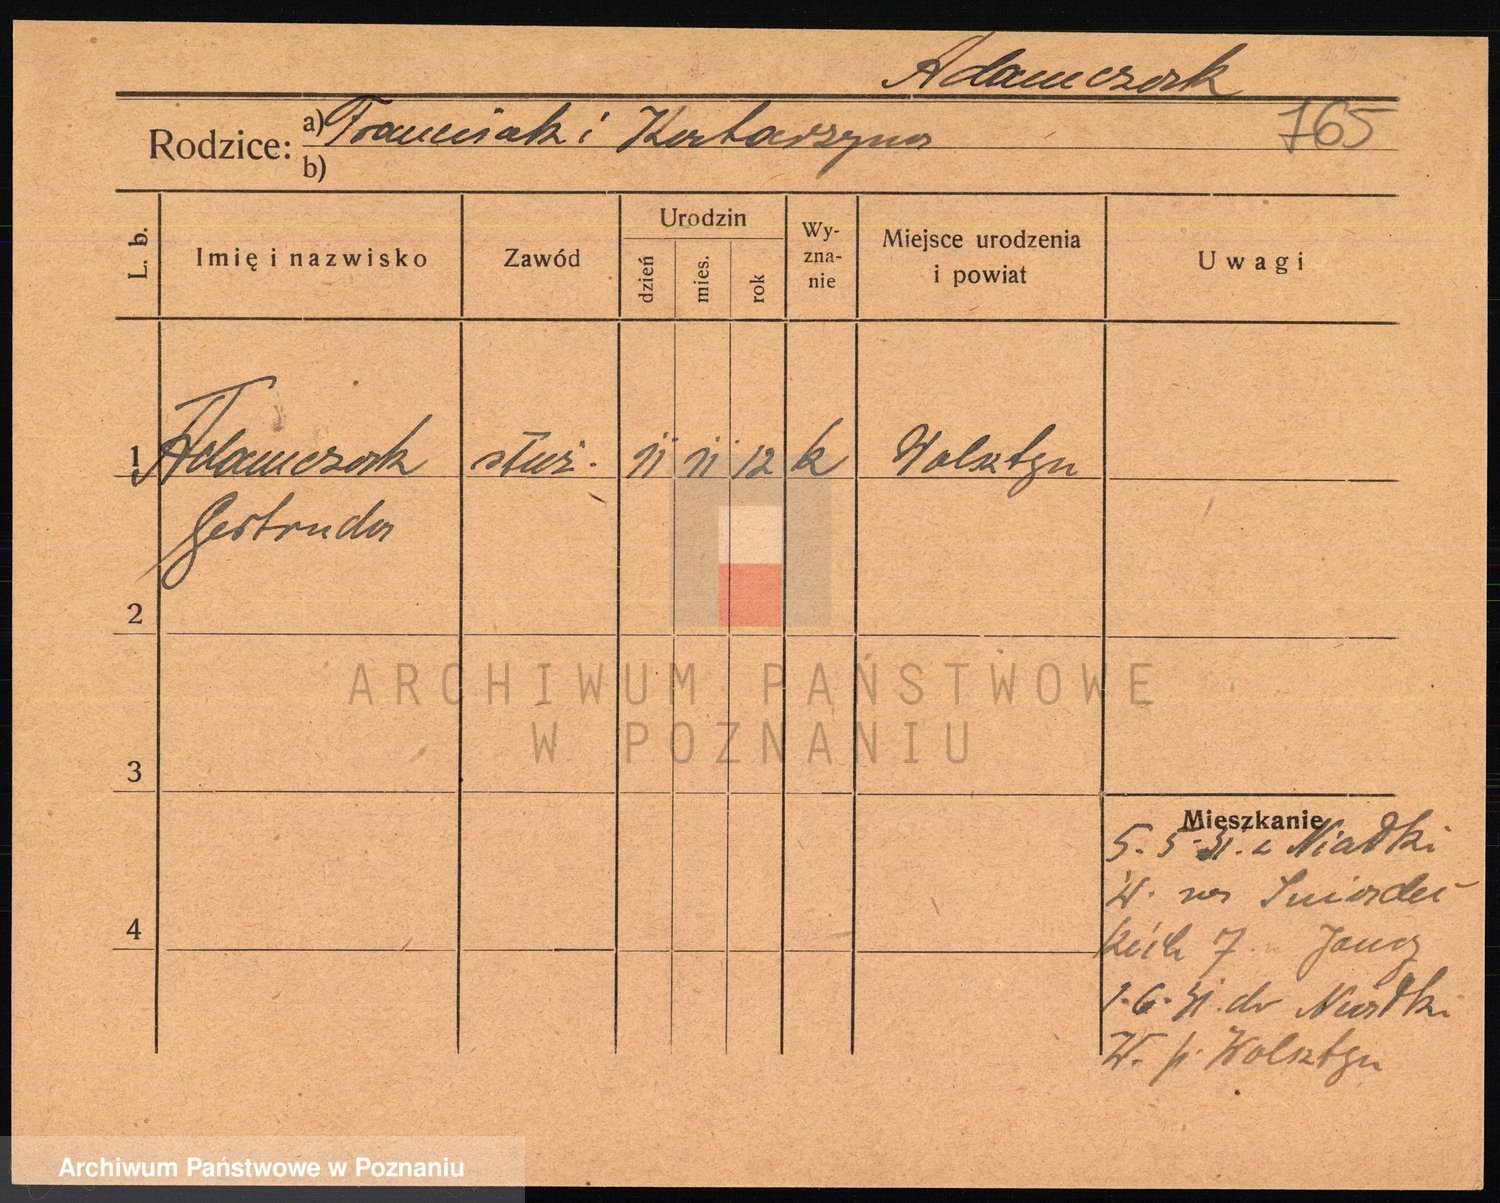 Adamczak
Rodzice: a) Franciszek i Katarzyna 765
b)
L. b. Imię i nazwisko Zawód Urodzin dzień mies. rok Wy-zna-nie Miejsce urodzenia i powiat Uwagi
1 Adamczak służ. 11 11 12 k Wolsztyn
Gertruda
2
3
4
Mieszkanie
5. 5. 31. z Niałki
W. na
7
1. 6. 31. do Niałki
W. p. Wolsztyn
ARCHIWUM PAŃSTWOWE
W POZNANIU
Archiwum Państwowe w Poznaniu